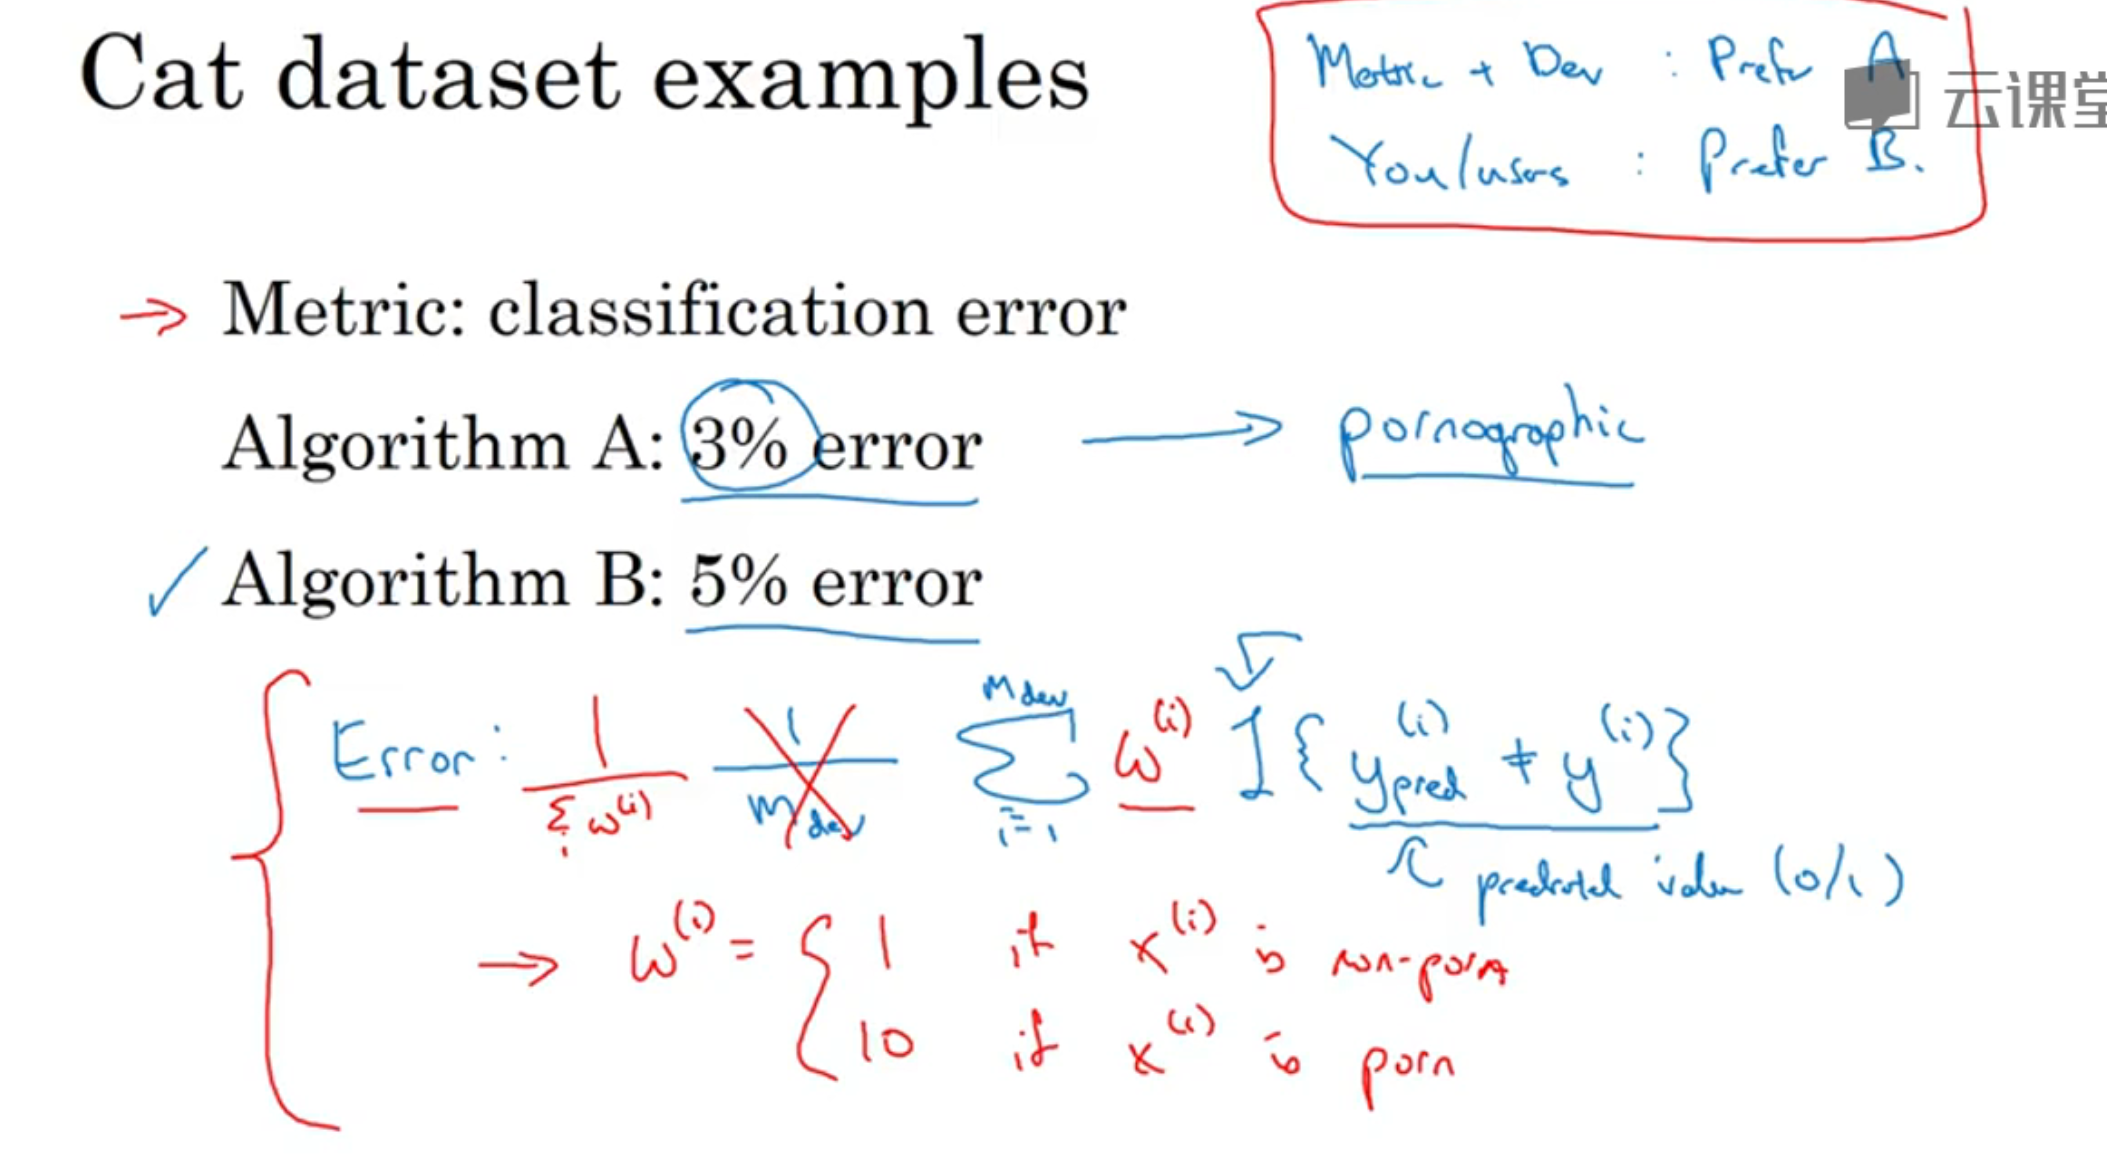 Cat dataset examples
Metric + Dev : Prefer A
You/users : Prefer B.
云课堂
→ Metric: classification error
Algorithm A: 3% error → pornographic
✓ Algorithm B: 5% error
Error: 1/Σᵢ w⁽ⁱ⁾ 1/m_dev Σ_{i=1}^{m_dev} w⁽ⁱ⁾ 𝟙{y_pred⁽ⁱ⁾ ≠ y⁽ⁱ⁾}
predicted value (0/1)
→ w⁽ⁱ⁾ = { 1 if x⁽ⁱ⁾ is non-porn
10 if x⁽ⁱ⁾ is porn